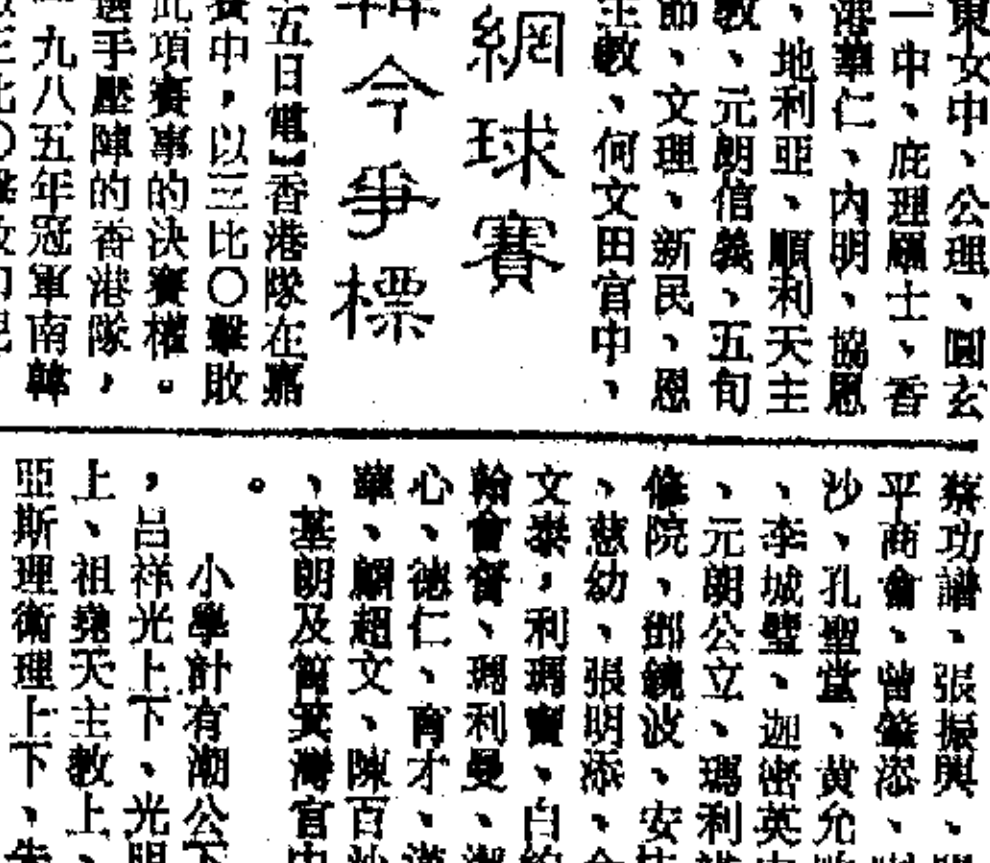 東女中、公理、圓玄
一中、庇理羅士、香
港華仁、內明、協恩
、地利亞、順利天主
教、元朗信義、五旬
節、文理、新民、恩
主教、何文田官中、
網球賽
韓今爭標
五日電】香港隊在嘉
賽中，以三比〇擊敗
此項賽事的決賽權。
選手壓陣的香港隊，
九八五年冠軍南韓
蔡功譜、張振興、
平商會、曾肇添、
沙、孔聖堂、黃允
、李城璧、迦密英
、元朗公立、瑪利
修院、鄧鏡波、安
、慈幼、張明添、
文泰，利瑪竇、白
翰會督、瑪利曼、
心、德仁、育才、
華、顯超文、陳百
、基朗及筲箕灣官
。
小學計有潮公下
，呂祥光上下、光明
上、祖堯天主教上、
亞斯理衛理上下、